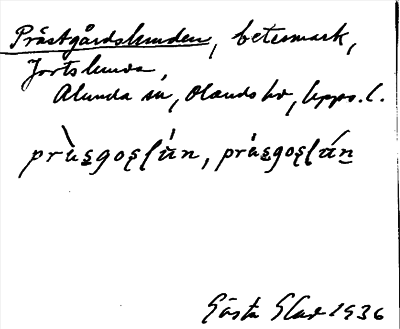 Prästgårdslunden, betesmark,
Jortslunda,
Alunda sn, Olands hd, Upps. l.
prà̀sgoslún, prà̀sgoslún
Gösta Glad 1936